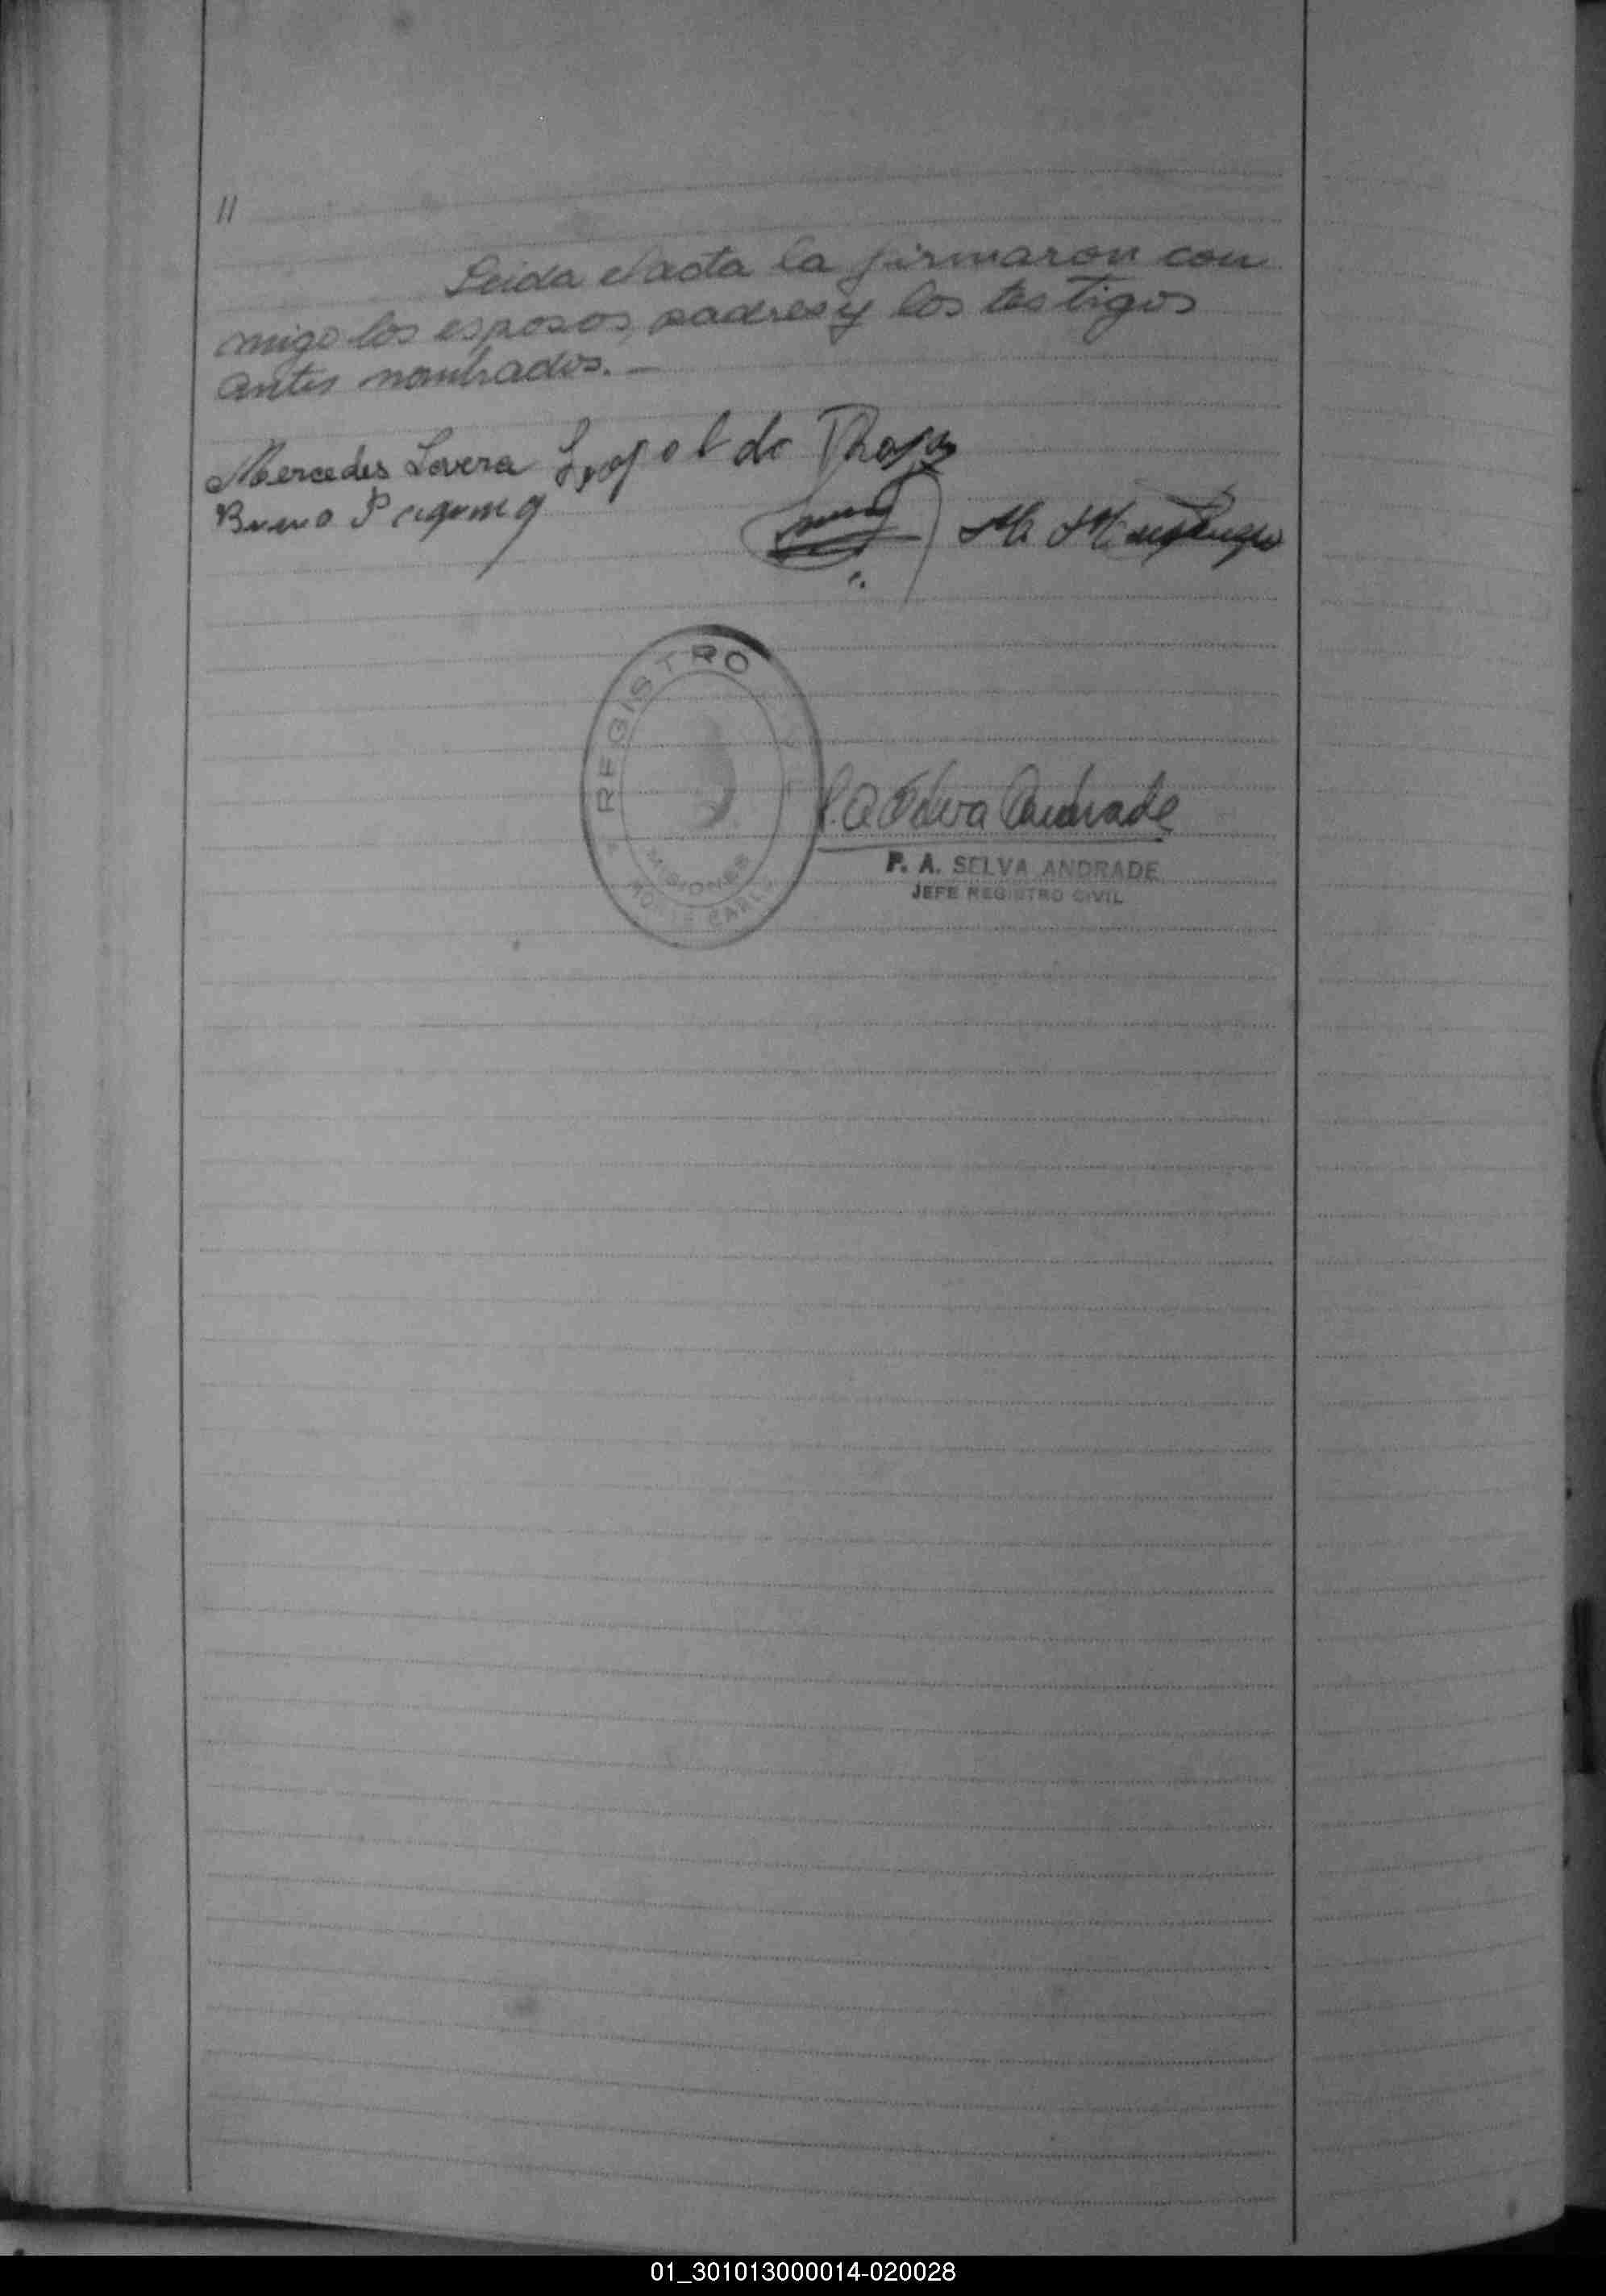 11
Leida el acta la firmaron con
migo los esposos, padres y los testigos
antes nombrados.—
Mercedes Lovera Leopoldo
Bruno
REGISTRO
MISIONES
MONTE CARLO
P. A. Selva Andrade
P. A. SELVA ANDRADE
JEFE REGISTRO CIVIL
01_301013000014-020028